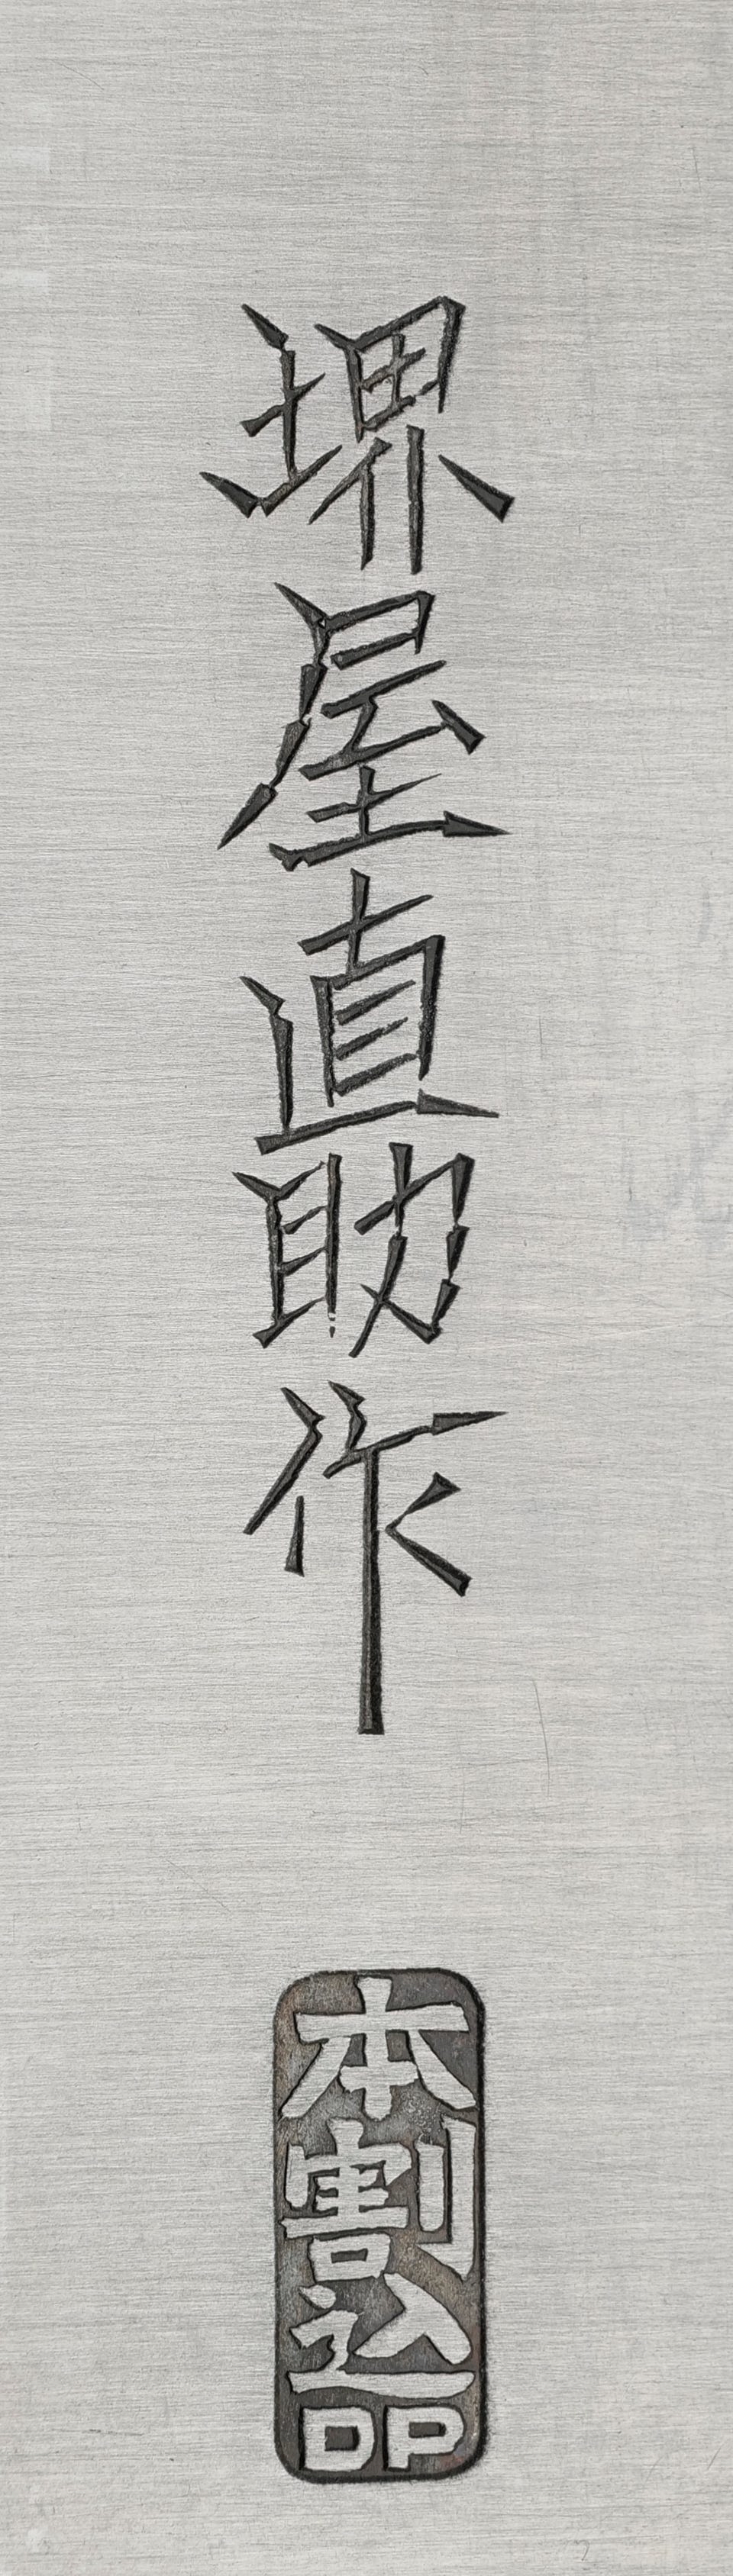 堺屋直助作
本割込
DP